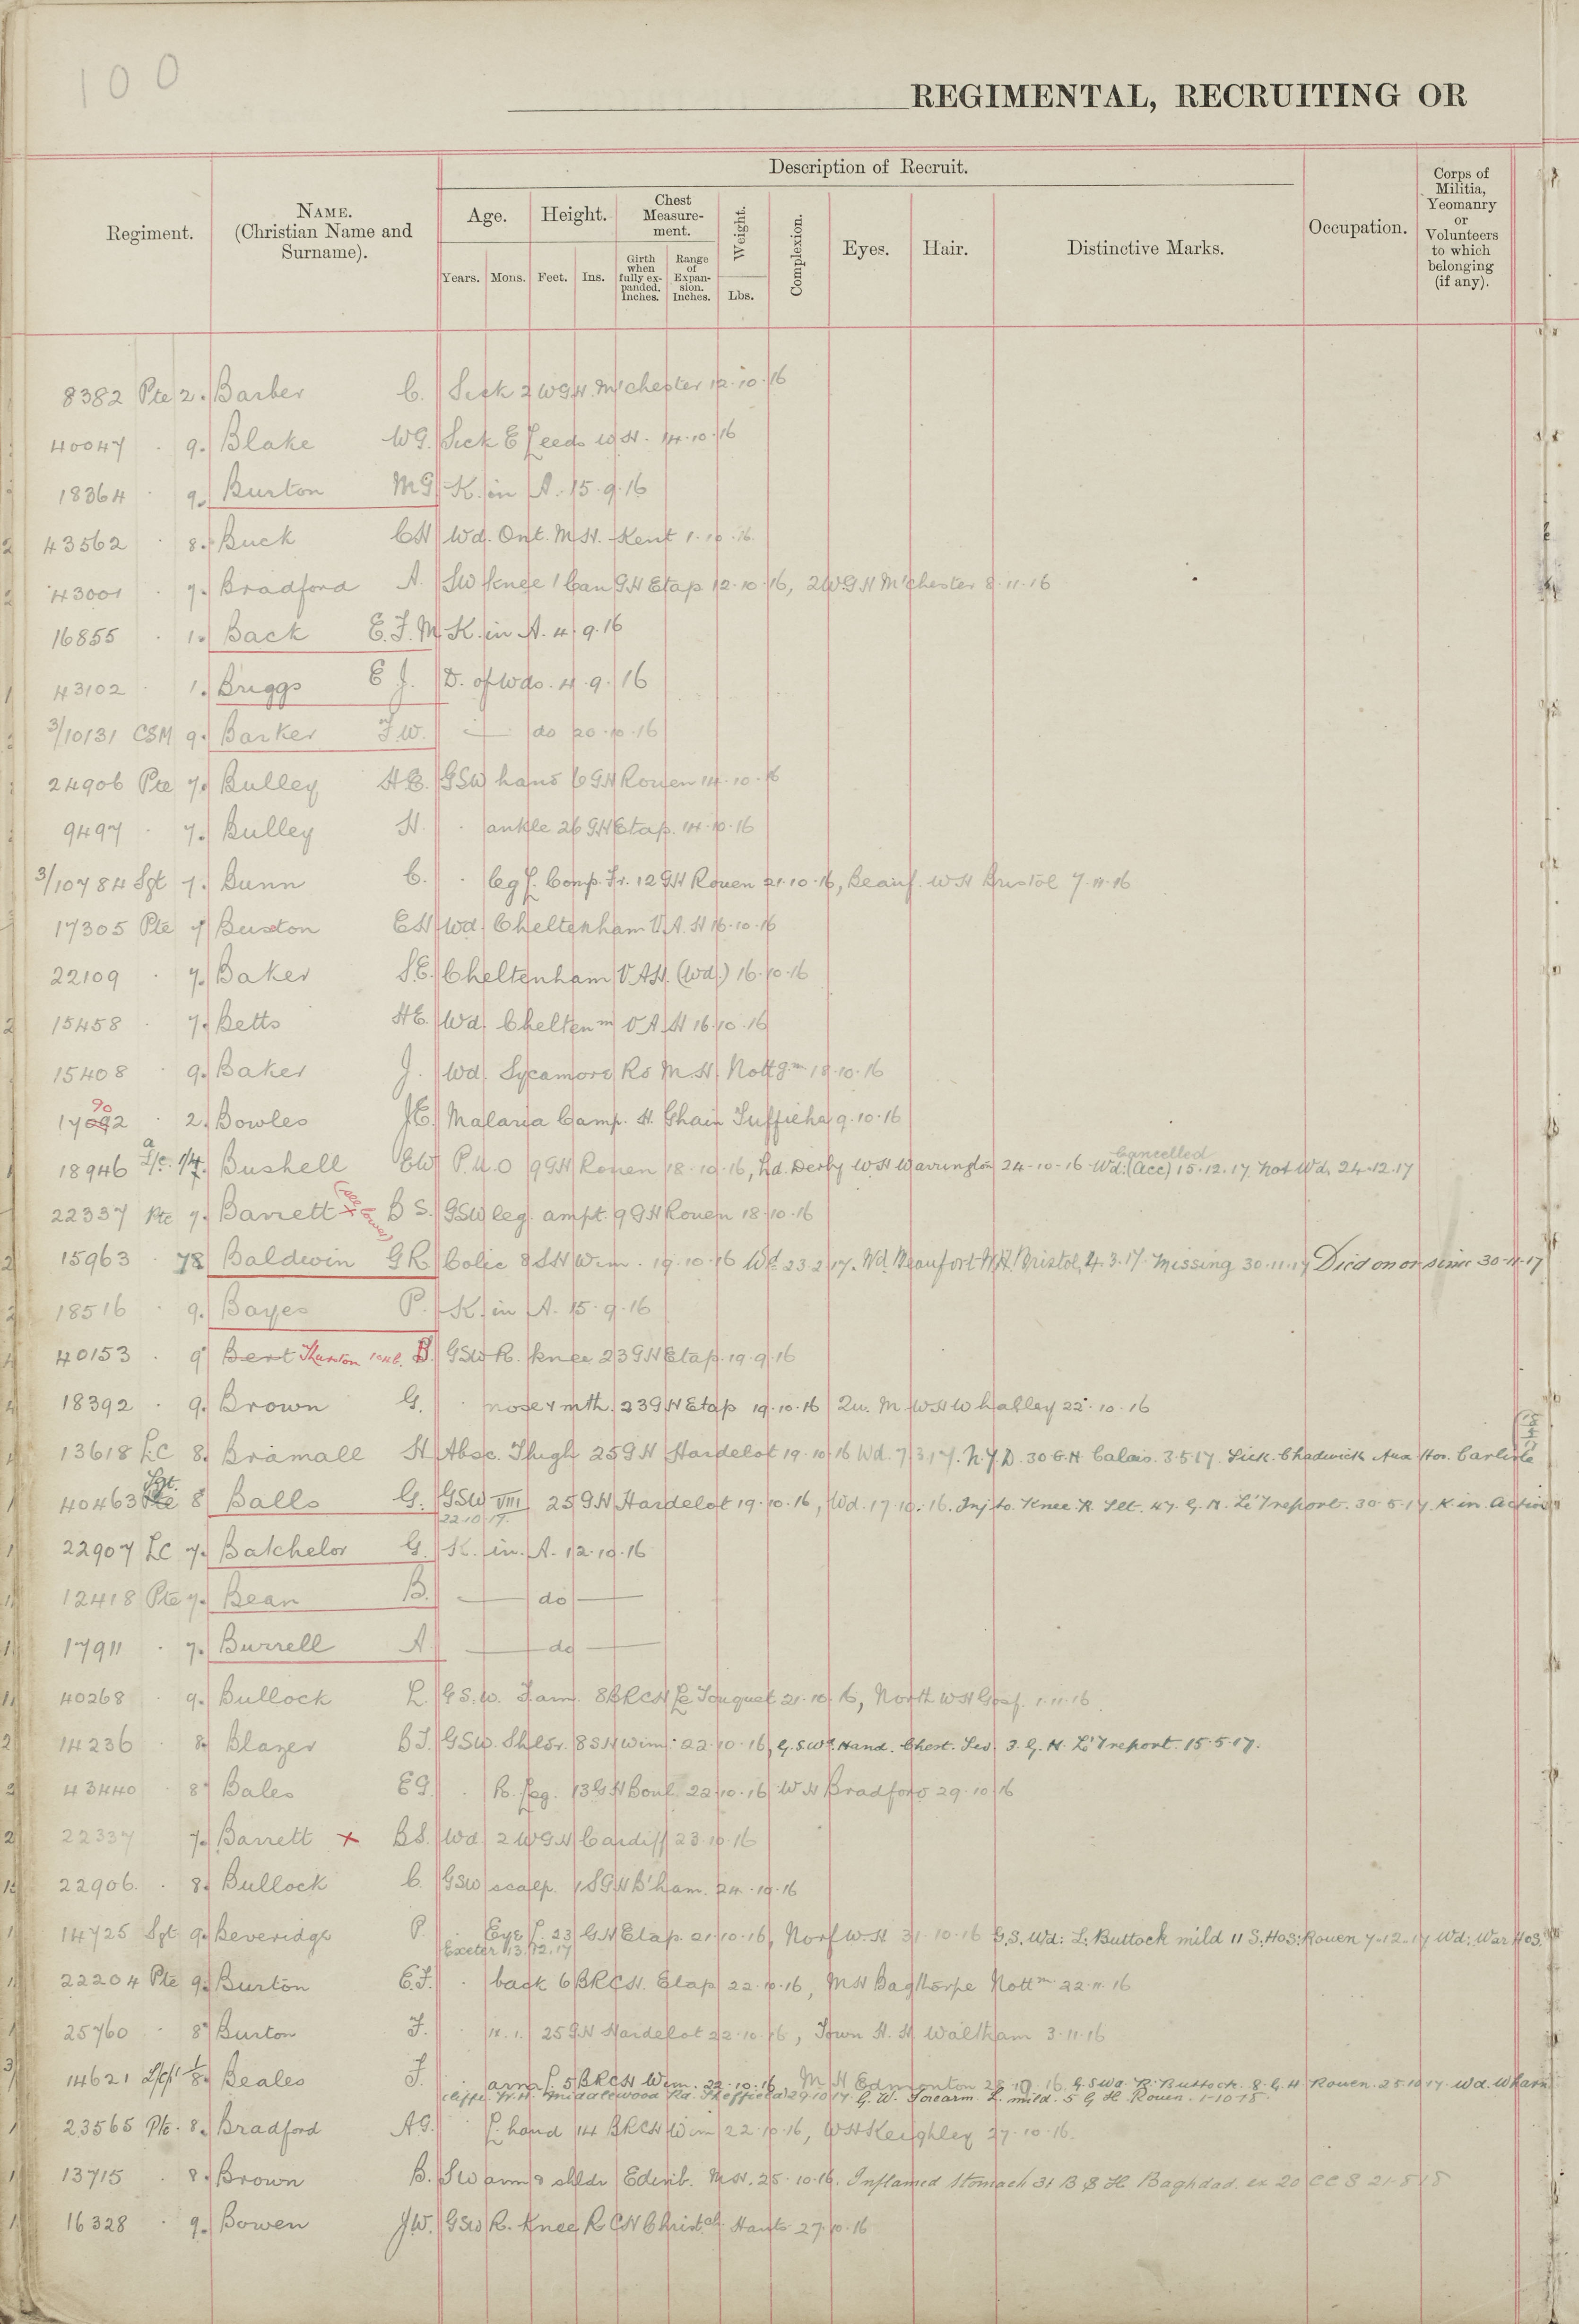 100
REGIMENTAL, RECRUITING OR
Regiment.
NAME.
(Christian Name and
Surname).
Description of Recruit.
Age.
Years. Mons.
Height.
Feet. Ins.
Chest
Measure-
ment.
Girth
when
fully ex-
panded.
Inches.
Range
of
Expan-
sion.
Inches.
Weight.
Lbs.
Complexion.
Eyes.
Hair.
Distinctive Marks.
Occupation.
Corps of
Militia,
Yeomanry
or
Volunteers
to which
belonging
(if any).
8382 Pte 2. Barber C. Sick 2 WGH. M'chester 12.10.16
40047 . 9. Blake WG. Sick E Leeds W.H. 14.10.16
18364 . 9. Burton MG K. in A. 15.9.16
43562 . 8. Buck CH Wd. Ont. M.H. Kent 1.10.16.
43001 . 7. Bradford A. SW knee 1 Can GH Etap 12.10.16, 2WGH M'chester 8.11.16
16855 . 1. Back E.F.M K. in A. 4.9.16
43102 . 1. Briggs E J. D. of Wds. 4.9.16
3/10131 CSM 9. Barker F.W. do 20.10.16
24906 Pte 7. Bulley H.E. GSW hand 6 GH Rouen 14.10.16
9497 . 7. Bulley H. . ankle 26 GH Etap. 14.10.16
3/10784 Sgt 7. Bunn C. . leg L. Comp. Fr. 12 GH Rouen 21.10.16, Beauf. WH Bristol 7.11.16
17305 Pte 7 Buxton EH Wd. Cheltenham V.A.H 16.10.16
22109 . 7. Baker S.E. Cheltenham V.A.H. (Wd.) 16.10.16
15458 . 7. Betts HE. Wd. Chelten m V.A.H 16.10.16
15408 . 9. Baker J. Wd. Sycamore Rd M.H. Nottgm 18.10.16
90
17092 . 2. Bowles JE. Malaria Camp. H. Ghain Tuffieha 9.10.16
cancelled
18946 a L/c. 1/7. Bushell EW P.U.O 9 GH Rouen 18.10.16, Ld. Derby W.H Warrington 24-10-16 Wd: (Acc) 15.12.17. Not Wd. 24.12.17
22337 Pte 7. Barrett (see + lower) B S. GSW leg. ampt. 9 GH Rouen 18.10.16
15963 . 78 Baldwin GR Colic 8 SH Wim. 19.10.16 Wd 23.2.17. Wd. Beaufort WH. Bristol, 4.3.17. Missing 30.11.17 Died on or since 30-11-17
18516 . 9. Bayes P. K. in A. 15.9.16
40153 . 9 Bert Thurston B. GSW R. knee 23 GH Etap. 19.9.16
18392 . 9. Brown G. . nose & mth. 23 GH Etap 19.10.16 Qu. M. WH Whalley 22.10.16
13618 L.C 8. Bramall H Absc. Thigh 25 GH Hardelot 19.10.16 Wd. 7.3.17. N.Y.D. 30 G.H Calais. 3.5.17. Sick. Chadwick Aux Hos. Carlisle
Sgt.
40463 Pte 8 Balls G. GSW VIII 25 GH Hardelot 19.10.16, Wd. 17.10.16. Inj to. Knee. R Slt. 47. G. H. Le Treport. 30.5.17. K in Action
22.10.17.
22907 LC 7. Batchelor G. K. in. A. 12.10.16
12418 Pte 7. Bean B. do
17911 . 7. Burrell A. do
40268 . 9. Bullock L. G.S.W. F.arm. 8 BRCH Le Touquet 21.10.16, North WH Gosf. 1.11.16.
14236 . 8. Blazer BJ. GSW. Shldr. 8 SH Wim. 22.10.16, G.S.Wd. Hand. Chest. Sev. 3. G. H. Le Treport. 15.5.17.
43440 . 8 Bales EG. . R. leg. 13 GH Boul. 22.10.16 WH Bradford 29.10.16
22337 7. Barrett + BS. Wd. 2 WGH Cardiff 23.10.16
22906. . 8. Bullock C. GSW scalp. 1 SGH B'ham. 24.10.16
14725 Sgt 9. Beveridge P. . Eye L. 23 GH Etap. 21.10.16, Norf W.H 31.10.16 G.S. Wd: L. Buttock mild 11 S. Hos: Rouen 7-12-17 Wd: War Hos.
Exeter 13.12.17
22204 Pte 9. Burton E.F. . back 6 BRCH. Etap 22.10.16, MH Bagthorpe Nottm. 22.11.16
25760 . 8 Burton F. . 25 GH Hardelot 22.10.16, Town H. H Waltham 3.11.16
14621 L/Cpl 1/8. Beales F. . arm L. 5 BRCH Wim. 22.10.16, M H Edmonton 28.10.16. G.S.Wd. R. Buttock. 8. G. H Rouen. 25.10.17. Wd. Wharn
cliffe W.H. Middlewood Rd. Sheffield 29.10.17 G. W. Forearm L. mild. 5 G H Rouen. 1-10-18.
23565 Pte. 8. Bradford AG. L. hand 14 BRCH Wim 22.10.16, WH Keighley 27.10.16.
13715 . 8. Brown B. SW arm & shldr Edinb. M.H. 25.10.16. Inflamed Stomach 31 B S H Baghdad. ex 20 CCS 21-5-18
16328 . 9. Bowen J.W. GSW R. Knee RCH Christch. Hants 27.10.16